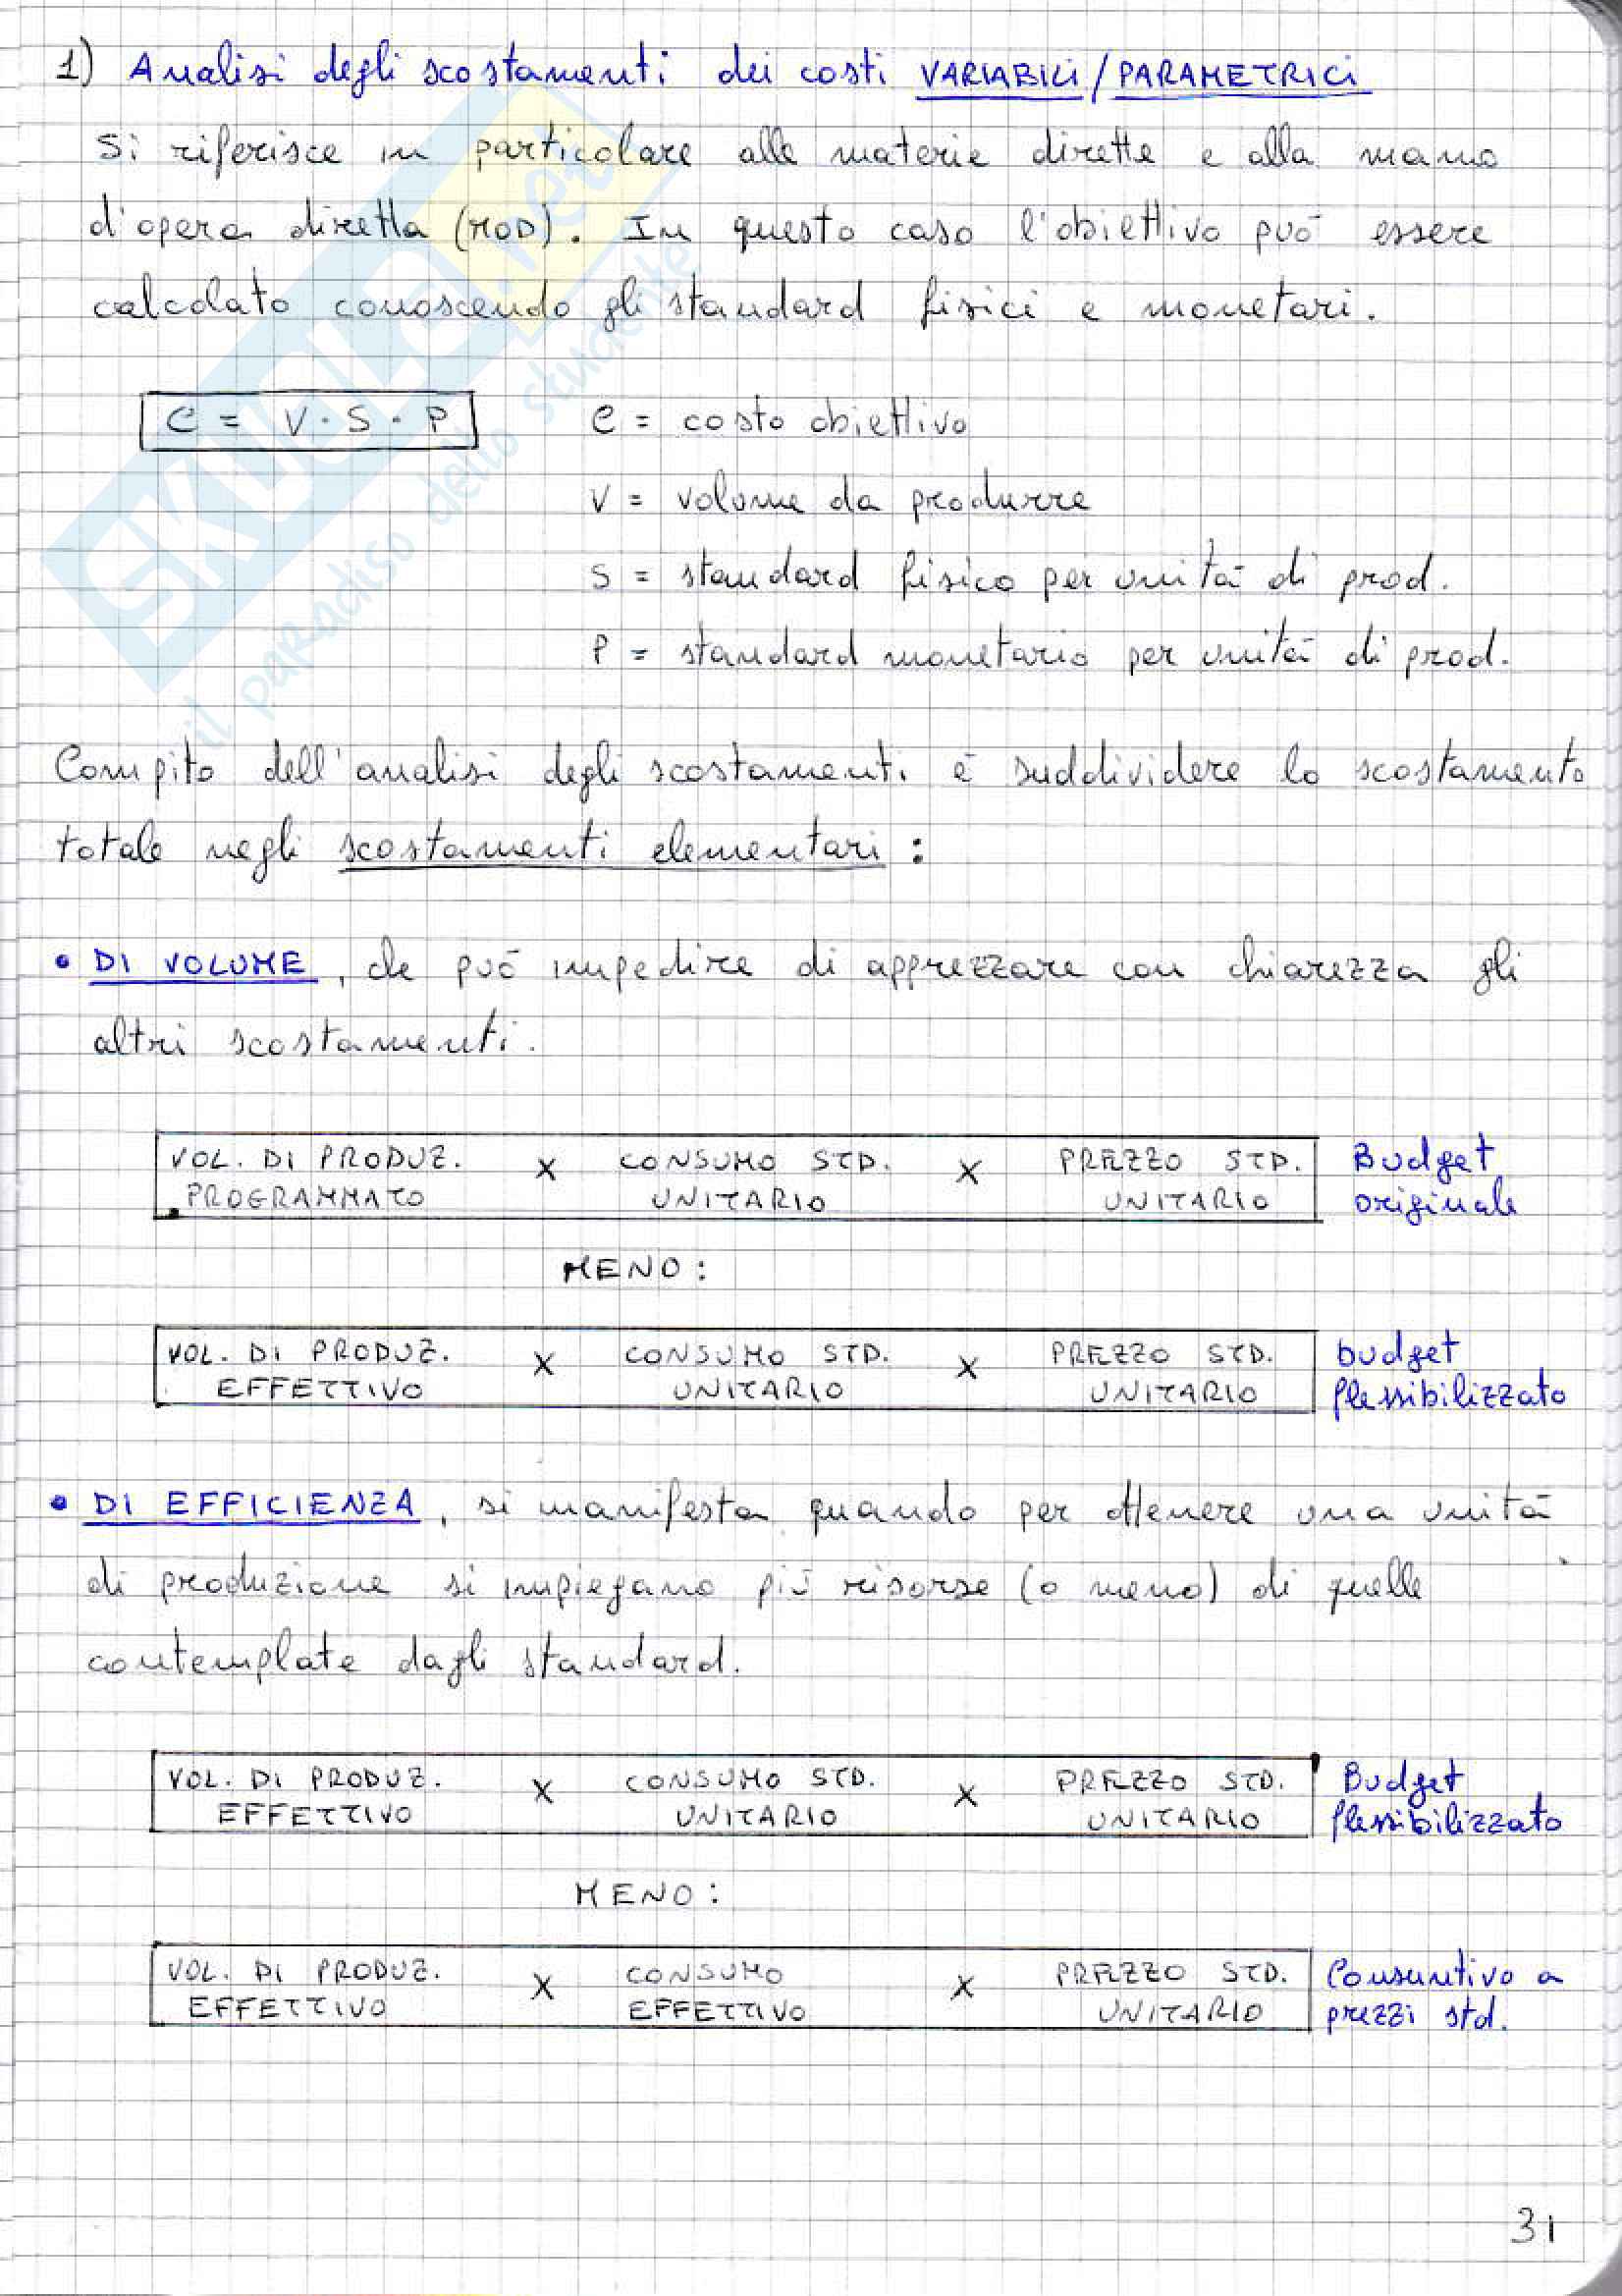 1) Analisi degli scostamenti dei costi VARIABILI/PARAMETRICI
Si riferisce in particolare alle materie dirette e alla mano
d'opera diretta (MOD). In questo caso l'obiettivo può essere
calcolato conoscendo gli standard fisici e monetari.
C = V · S · P
C = costo obiettivo
V = volume da produrre
S = standard fisico per unità di prod.
P = standard monetario per unità di prod.
Compito dell'analisi degli scostamenti è suddividere lo scostamento
totale negli scostamenti elementari :
• DI VOLUME, che può impedire di apprezzare con chiarezza gli
altri scostamenti.
VOL. DI PRODUZ. X CONSUMO STD. X PREZZO STD. Budget
PROGRAMMATO UNITARIO UNITARIO originale
MENO :
VOL. DI PRODUZ. X CONSUMO STD. X PREZZO STD. budget
EFFETTIVO UNITARIO UNITARIO flessibilizzato
• DI EFFICIENZA, si manifesta quando per ottenere una unità
di produzione si impiegano più risorse (o meno) di quelle
contemplate dagli standard.
VOL. DI PRODUZ. X CONSUMO STD. X PREZZO STD. Budget
EFFETTIVO UNITARIO UNITARIO flessibilizzato
MENO :
VOL. DI PRODUZ. X CONSUMO X PREZZO STD. Consuntivo a
EFFETTIVO EFFETTIVO UNITARIO prezzi std.
31
SKUOLA.net
il paradiso dello studente